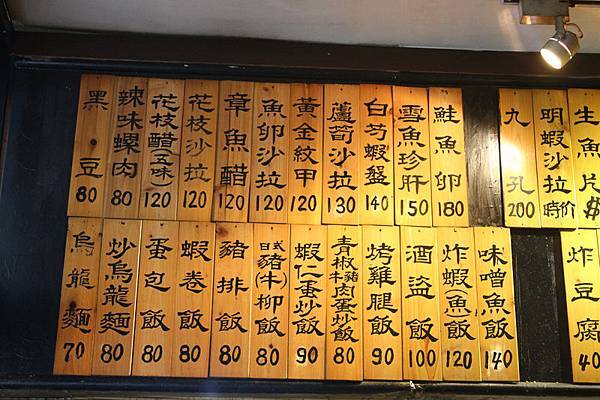 黑豆 80
辣味螺肉 80
花枝醋(五味) 120
花枝沙拉 120
章魚醋 120
魚卵沙拉 120
黃金紋甲 120
蘆筍沙拉 130
白芍蝦盤 140
雪魚珍肝 150
鮭魚卵 180
九孔 200
明蝦沙拉 時價
生魚片 $
烏龍麵 70
炒烏龍麵 80
蛋包飯 80
蝦卷飯 80
豬排飯 80
日式豬(牛)柳飯 80
蝦仁蛋炒飯 90
青椒牛豬肉蛋炒飯 80
烤雞腿飯 90
酒盜飯 100
炸蝦(魚)飯 120
味噌魚飯 140
炸豆腐 40